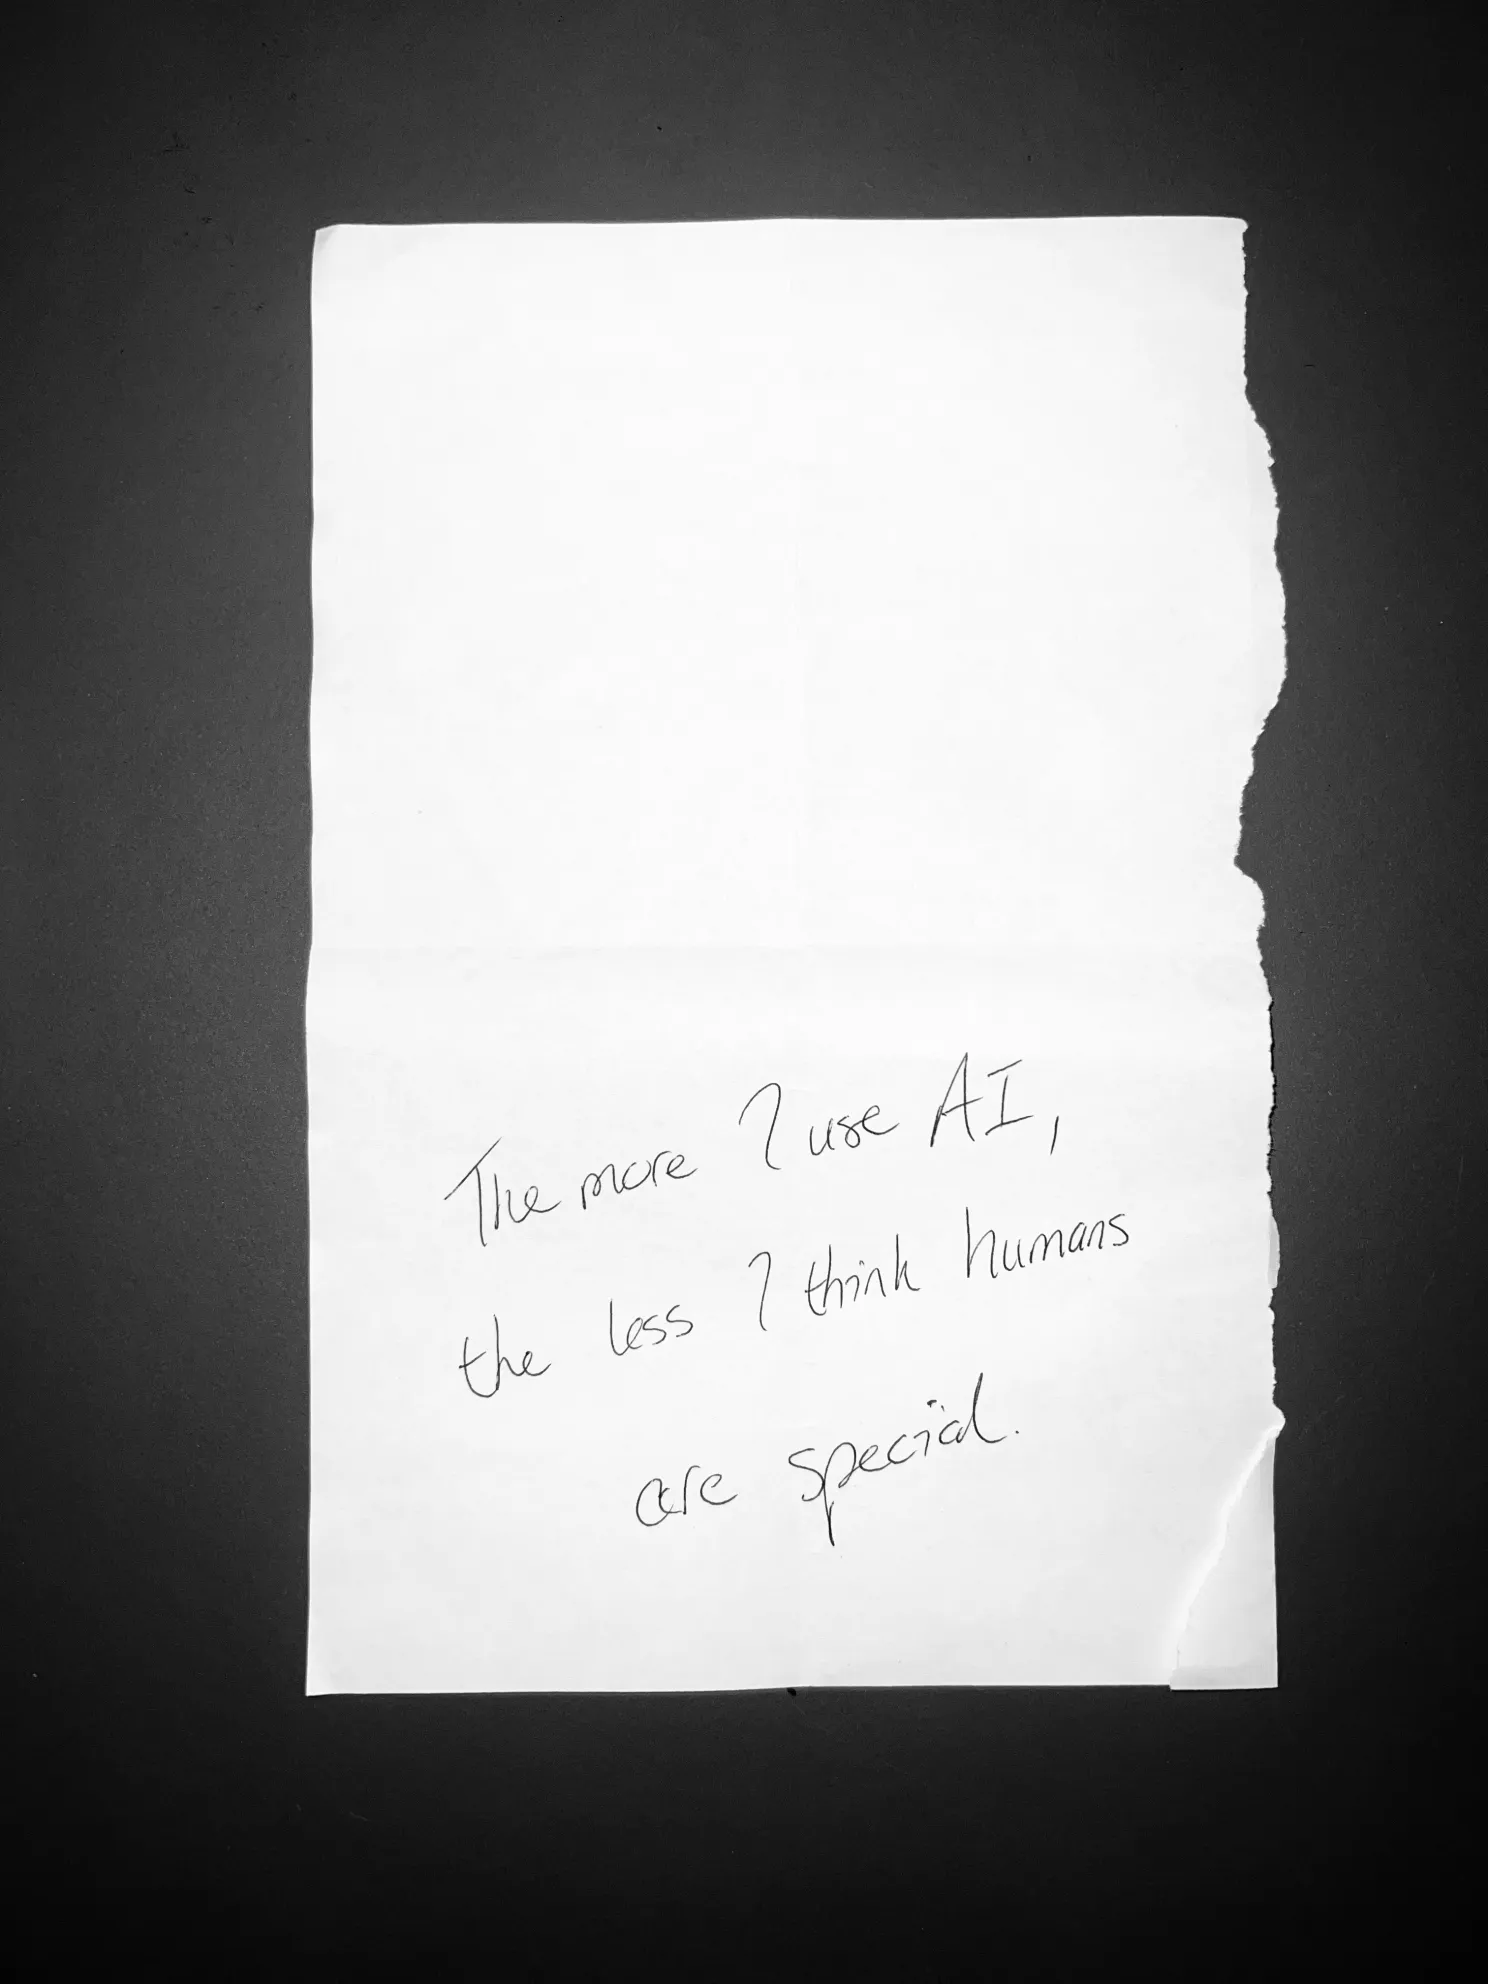 The more I use AI,
the less I think humans
are special.